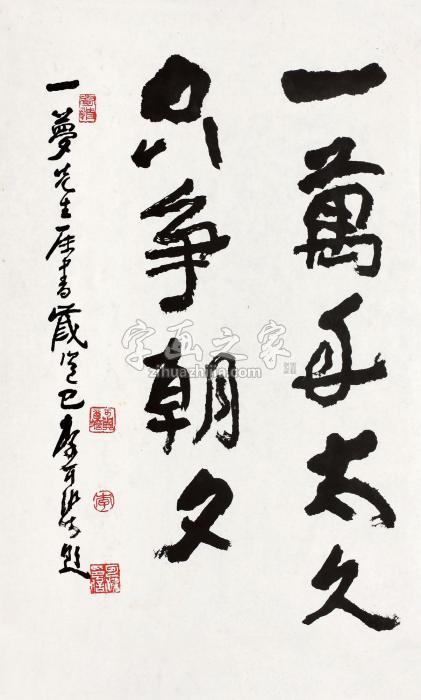 一萬年太久
只争朝夕
一夢先生屬書歲in己巳李可染題
字画之家
zihuazhijia.com